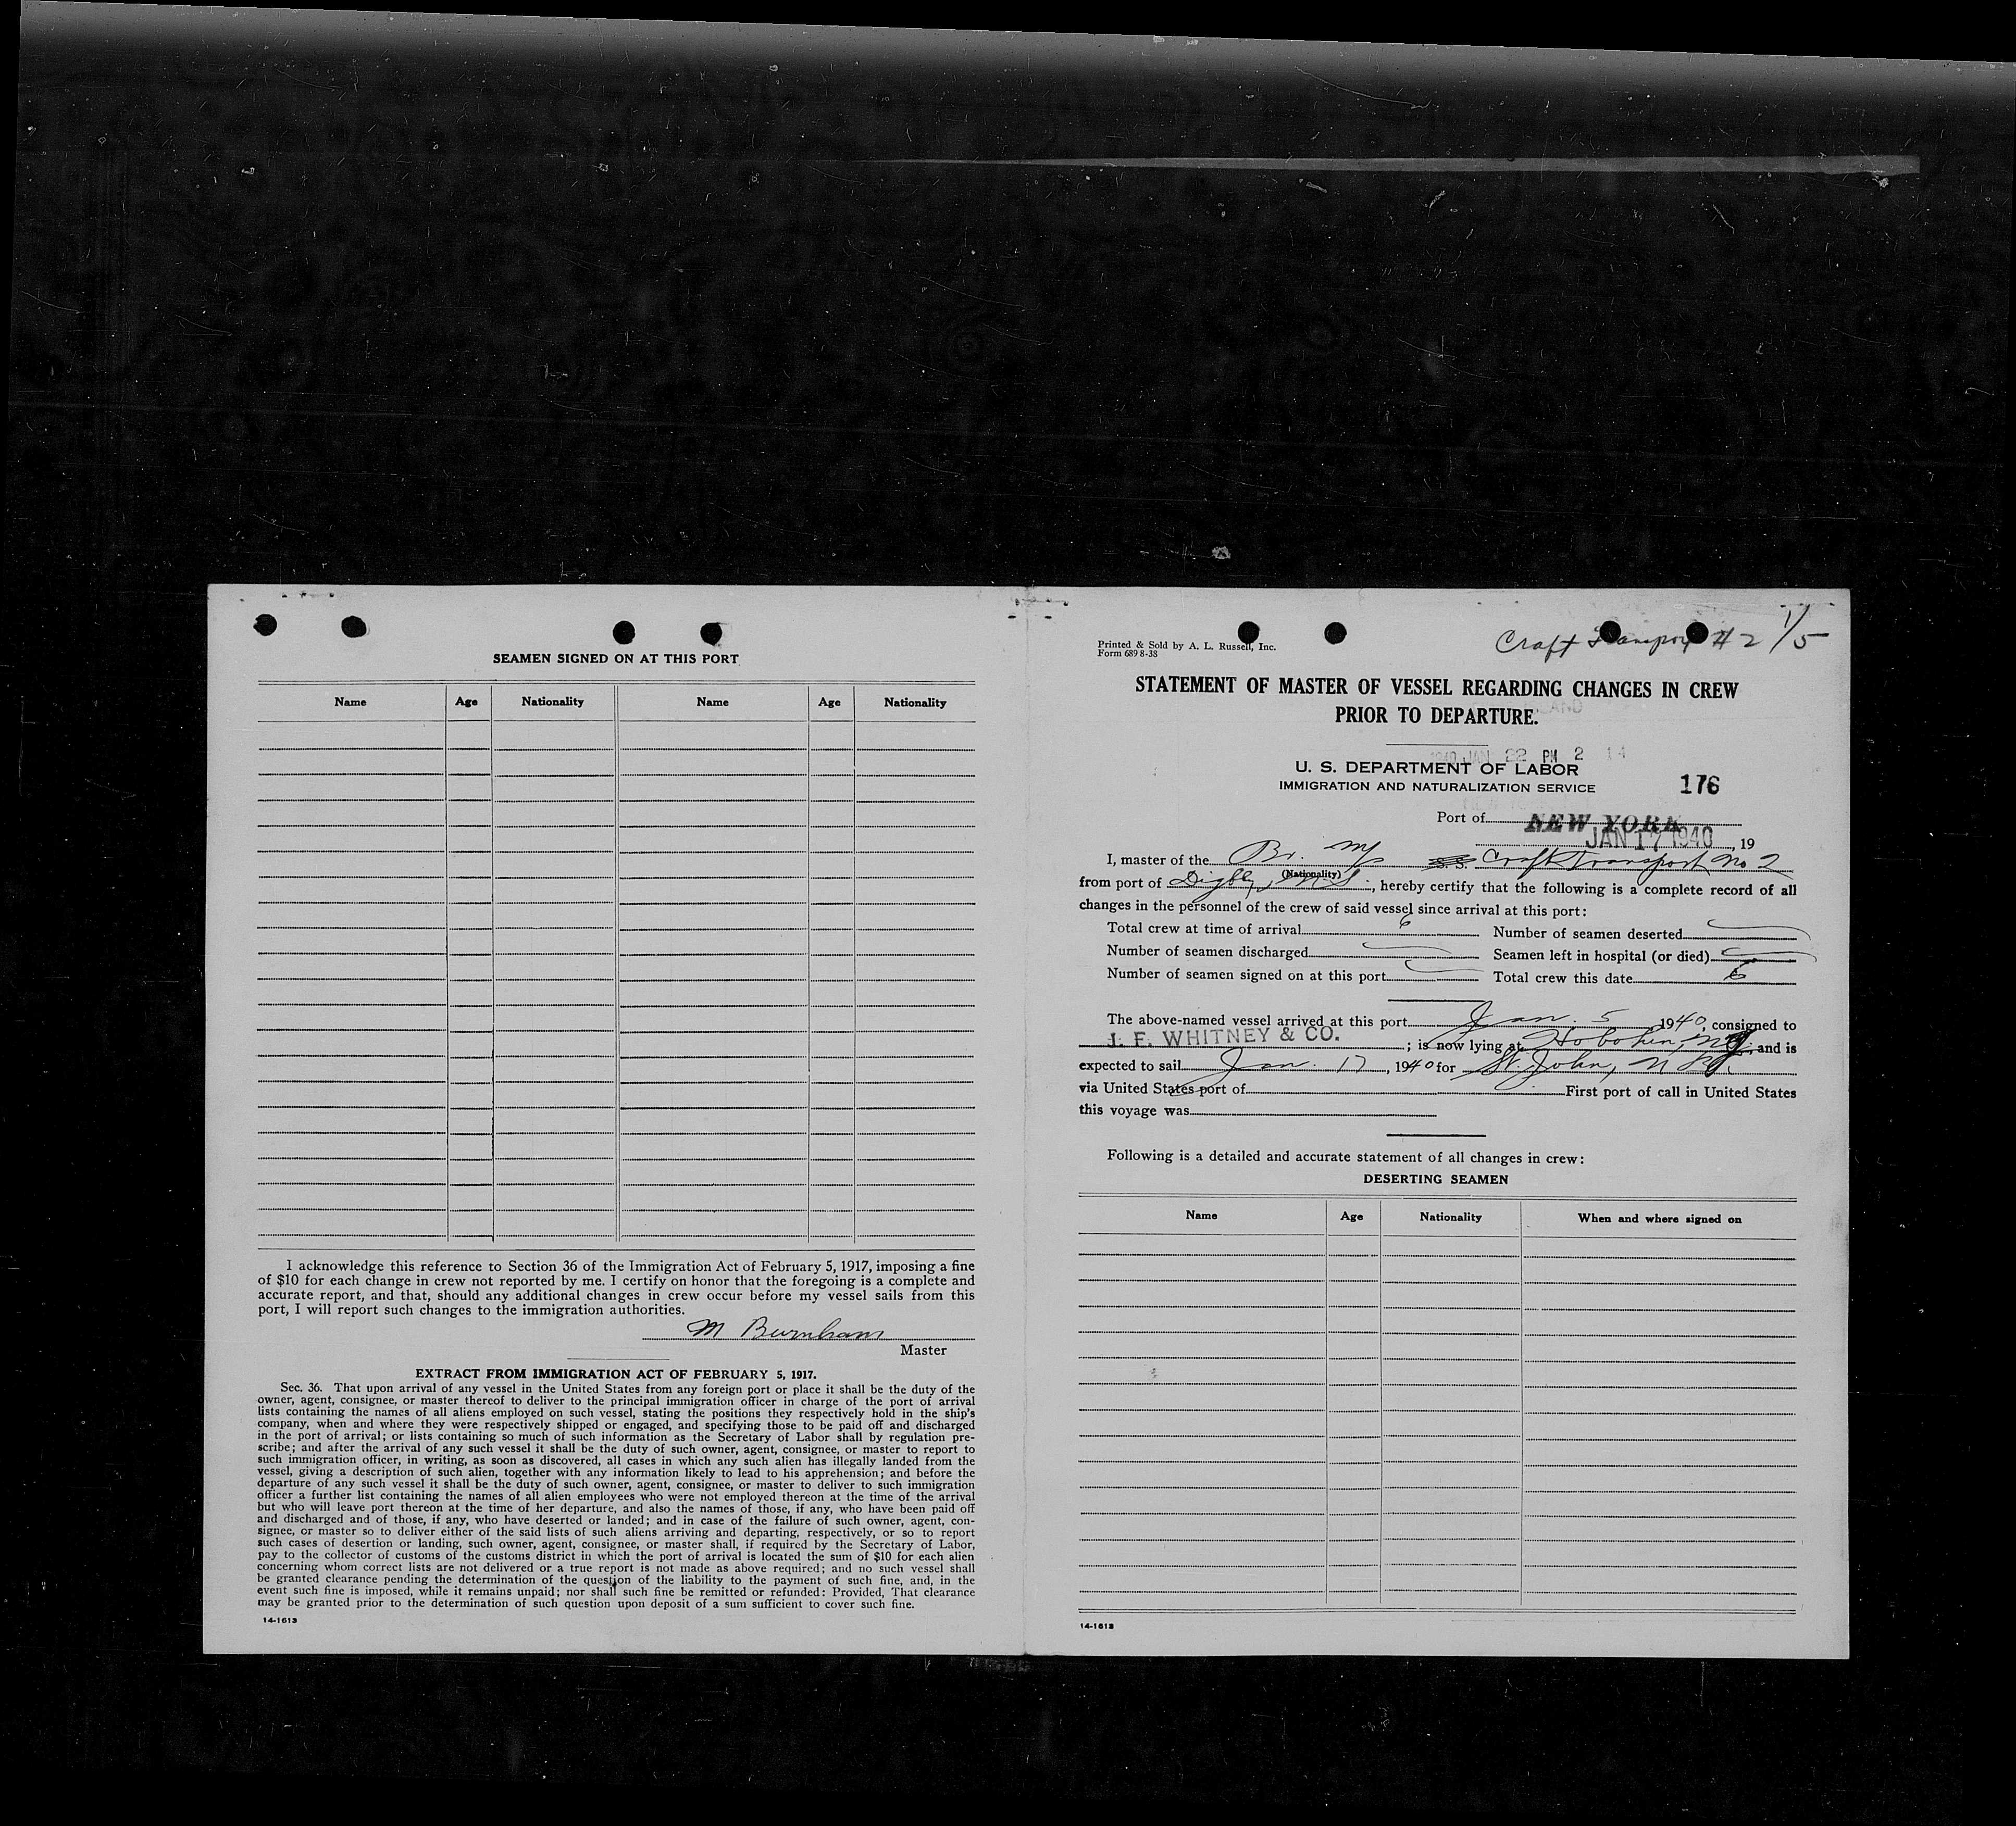 SEAMEN SIGNED ON AT THIS PORT
Name Age Nationality Name Age Nationality
I acknowledge this reference to Section 36 of the Immigration Act of February 5, 1917, imposing a fine
of $10 for each change in crew not reported by me. I certify on honor that the foregoing is a complete and
accurate report, and that, should any additional changes in crew occur before my vessel sails from this
port, I will report such changes to the immigration authorities.
M Burnham
Master
EXTRACT FROM IMMIGRATION ACT OF FEBRUARY 5, 1917.
Sec. 36. That upon arrival of any vessel in the United States from any foreign port or place it shall be the duty of the
owner, agent, consignee, or master thereof to deliver to the principal immigration officer in charge of the port of arrival
lists containing the names of all aliens employed on such vessel, stating the positions they respectively hold in the ship's
company, when and where they were respectively shipped or engaged, and specifying those to be paid off and discharged
in the port of arrival; or lists containing so much of such information as the Secretary of Labor shall by regulation pre-
scribe; and after the arrival of any such vessel it shall be the duty of such owner, agent, consignee, or master to report to
such immigration officer, in writing, as soon as discovered, all cases in which any such alien has illegally landed from the
vessel, giving a description of such alien, together with any information likely to lead to his apprehension; and before the
departure of any such vessel it shall be the duty of such owner, agent, consignee, or master to deliver to such immigration
officer a further list containing the names of all alien employees who were not employed thereon at the time of the arrival
but who will leave port thereon at the time of her departure, and also the names of those, if any, who have been paid off
and discharged and of those, if any, who have deserted or landed; and in case of the failure of such owner, agent, con-
signee, or master so to deliver either of the said lists of such aliens arriving and departing, respectively, or so to report
such cases of desertion or landing, such owner, agent, consignee, or master shall, if required by the Secretary of Labor,
pay to the collector of customs of the customs district in which the port of arrival is located the sum of $10 for each alien
concerning whom correct lists are not delivered or a true report is not made as above required; and no such vessel shall
be granted clearance pending the determination of the question of the liability to the payment of such fine, and, in the
event such fine is imposed, while it remains unpaid; nor shall such fine be remitted or refunded: Provided, That clearance
may be granted prior to the determination of such question upon deposit of a sum sufficient to cover such fine.
14-1613
Craft Transport #2 1/5
Printed & Sold by A. L. Russell, Inc.
Form 689 8-38
STATEMENT OF MASTER OF VESSEL REGARDING CHANGES IN CREW
PRIOR TO DEPARTURE.
1940 JAN 22 PM 2 14
U. S. DEPARTMENT OF LABOR
IMMIGRATION AND NATURALIZATION SERVICE 176
Port of NEW YORK
JAN 17 1940, 19
I, master of the Br. M/S S. S. Craft Transport No 2
(Nationality)
from port of Digby, N.S., hereby certify that the following is a complete record of all
changes in the personnel of the crew of said vessel since arrival at this port:
Total crew at time of arrival 6 Number of seamen deserted
Number of seamen discharged Seamen left in hospital (or died)
Number of seamen signed on at this port Total crew this date 6
The above-named vessel arrived at this port Jan. 5, 1940, consigned to
J. F. WHITNEY & CO.; is now lying at Hoboken, NJ, and is
expected to sail Jan. 17, 1940 for St. John, N B.
via United States port of First port of call in United States
this voyage was
Following is a detailed and accurate statement of all changes in crew:
DESERTING SEAMEN
Name Age Nationality When and where signed on
14-1613